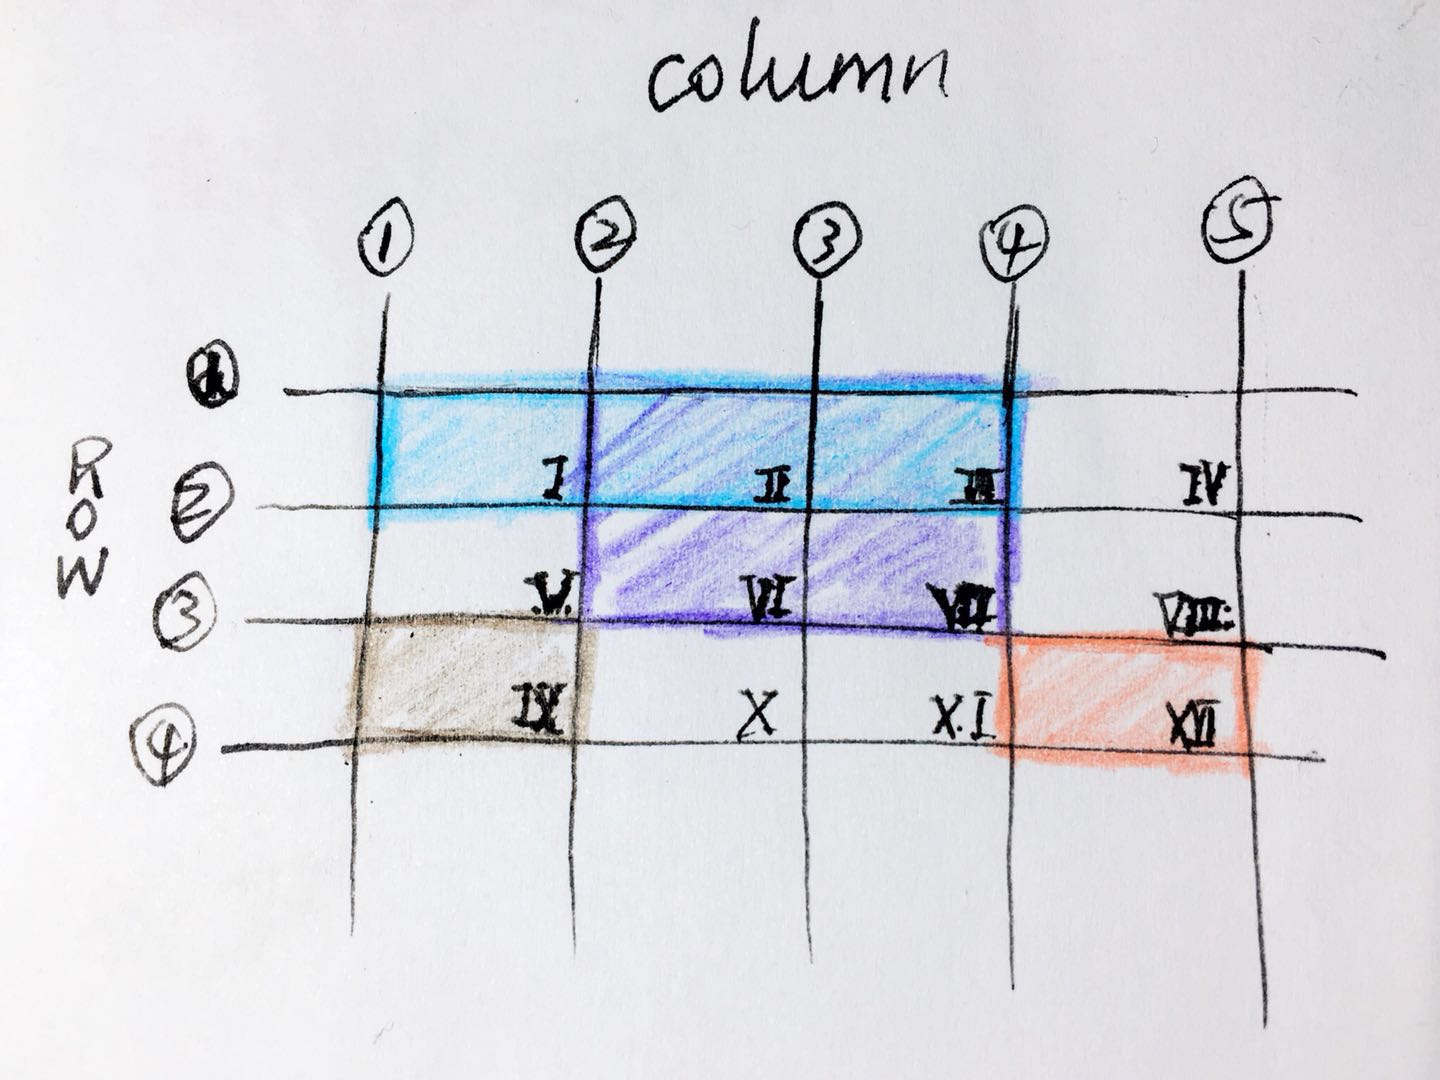 column
① ② ③ ④ ⑤
ROW
①
I II III IV
②
V. VI VII VIII:
③
IX X X.I XII
④